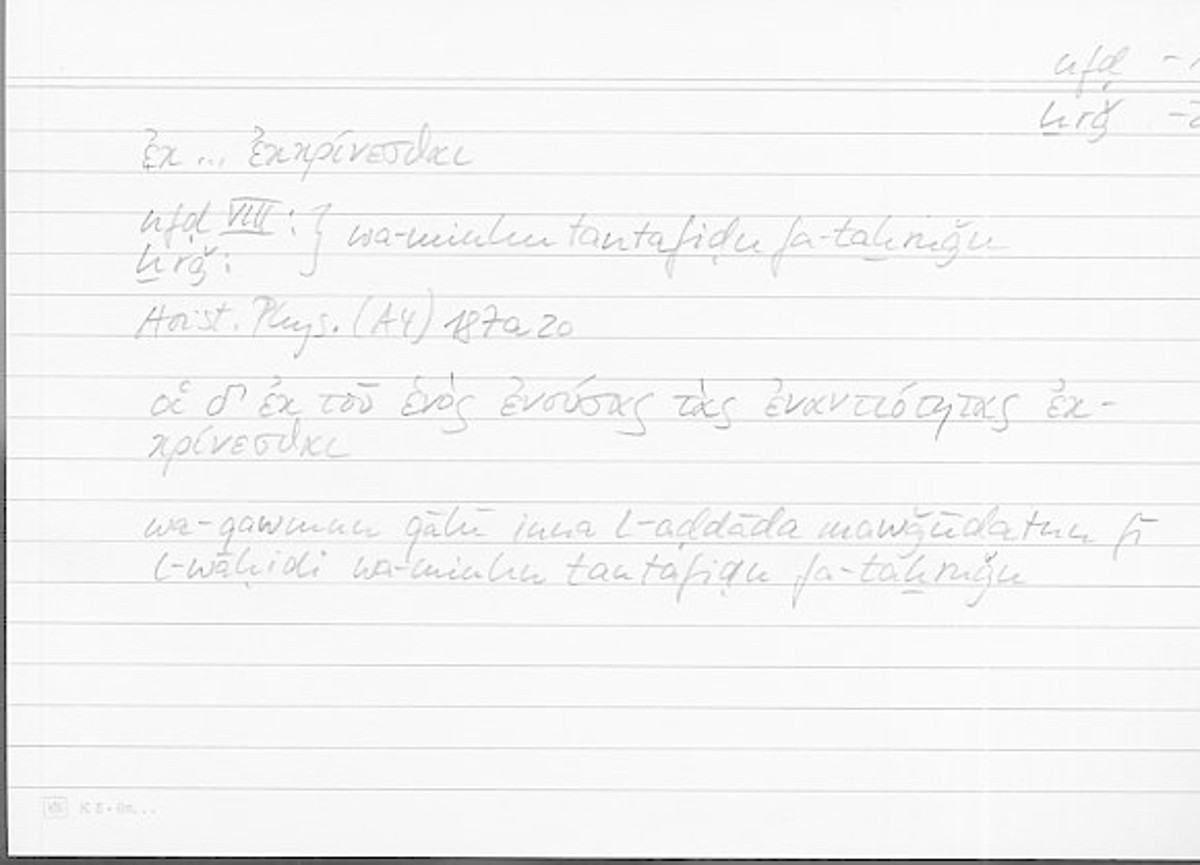 nfḍ -1
ḫrǧ -2
ἐκ ... ἐκκρίνεσθαι
nfḍ VIII : } wa-minhu tantafiḍu fa-taḫruǧu
ḫrǧ :
Arist. Phys. (A4) 187a20
οἱ δ' ἐκ τοῦ ἑνὸς ἐνούσας τὰς ἐναντιότητας ἐκ-
κρίνεσθαι
wa-qawmun qālū inna l-aḍdāda mawǧūdatun fī
l-wāḥidi wa-minhu tantafiḍu fa-taḫruǧu